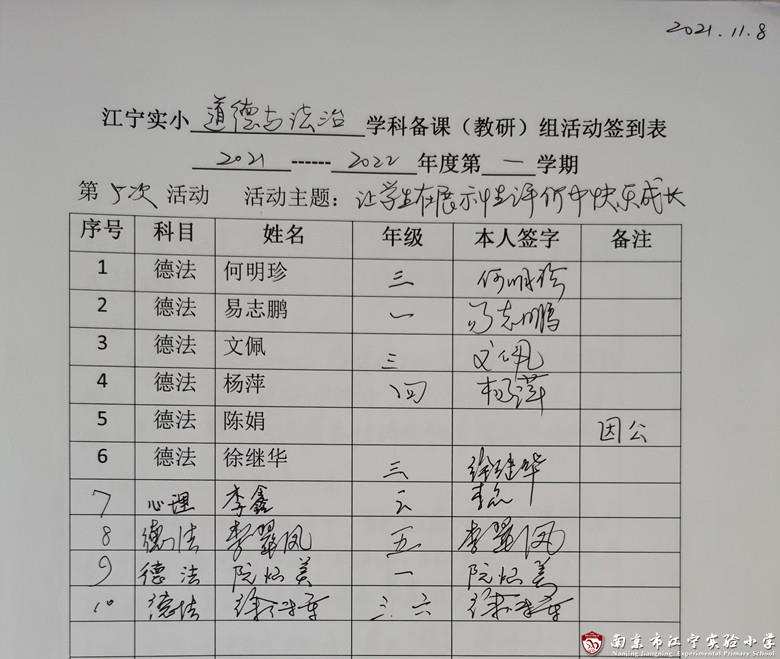 2021.11.8
江宁实小 道德与法治 学科备课（教研）组活动签到表
2021 ------ 2022 年度第 一 学期
第 5次 活动 活动主题：让学生在展示性评价中快乐成长
序号 科目 姓名 年级 本人签字 备注
1 德法 何明珍 三 何明珍
2 德法 易志鹏 一 易志鹏
3 德法 文佩 三 文佩
4 德法 杨萍 四 杨萍
5 德法 陈娟 因公
6 德法 徐继华 三 徐继华
7 心理 李鑫
8 德法 李翠凤 五 李翠凤
9 德法 阮灿美 一 阮灿美
10 德法 三.六
南京市江宁实验小学
Nanjing Jiangning Experimental Primary School